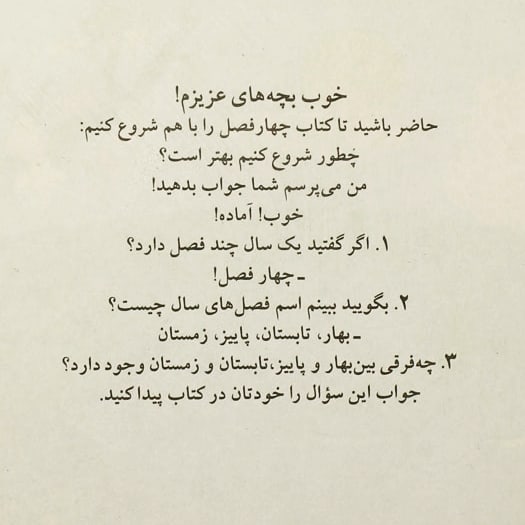 خوب بچه‌های عزیزم!
حاضر باشید تا کتاب چهارفصل را با هم شروع کنیم:
چَطور شروع کنیم بهتر است؟
من می‌پرسم شما جواب بدهید!
خوب! آماده!
۱. اگر گفتید یک سال چند فصل دارد؟
ـ چهار فصل!
۲. بگویید ببینم اسم فصل‌های سال چیست؟
ـ بهار، تابستان، پاییز، زمستان
۳. چه‌فرقی بین‌بهار و پاییز،تابستان و زمستان وجود دارد؟
جواب این سؤال را خودتان در کتاب پیدا کنید.